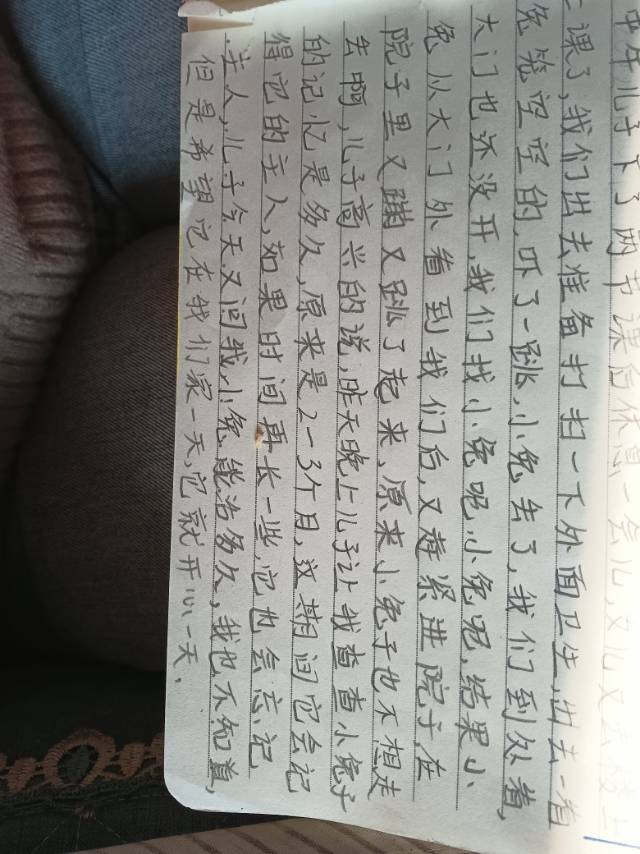 中午儿子下了两节课后休息一会儿,又儿又去
课了,我们出去准备打扫一下外面卫生,出去一看
兔笼空空的,吓了一跳,小兔去了,我们到处看,
大门也还没开,我们找小兔呢,小兔呢,结果小
兔从大门外看到我们后,又赶紧进院子,在
院子里又蹦又跳了起来,原来小兔子也不想走
去啊,儿子高兴的说,昨天晚上儿子让我查查小兔子
的记忆是多久,原来是2-3个月,这期间它会记
得它的主人,如果时间再长一些,它也会忘记
主人,儿子今天又问我小兔能活多久,我也不知道,
但是希望它在我们家一天,它就开心一天.